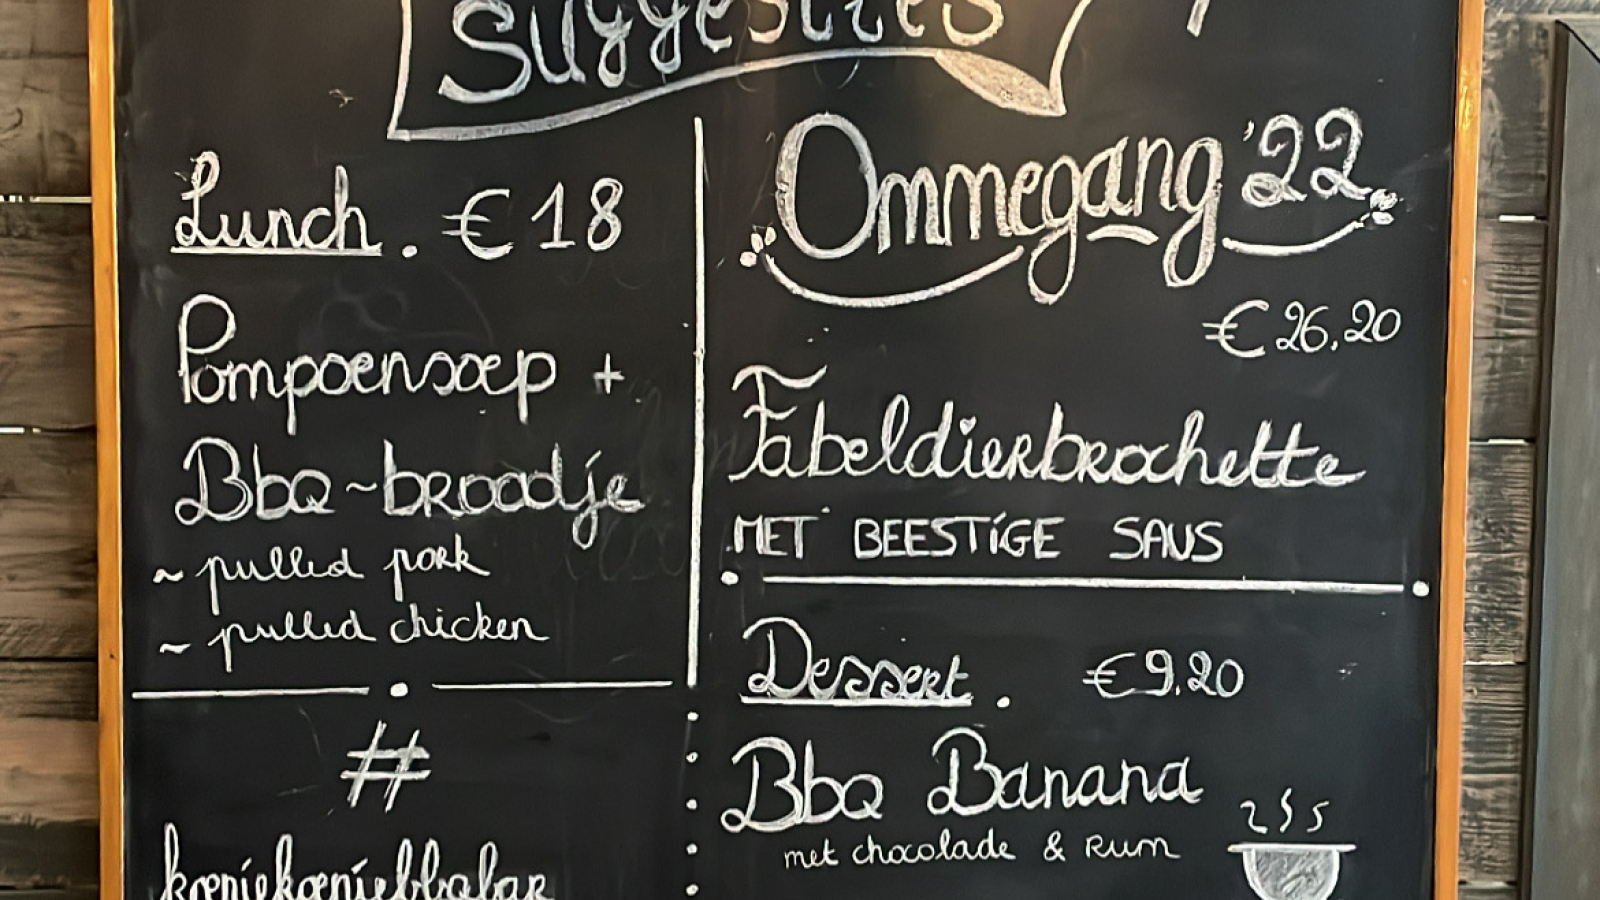 Suggesties
Lunch. €18
Pompoensoep +
Bbq~broodje
~ pulled pork
~ pulled chicken
#
Ommegang '22
€26,20
Fabeldierbrochette
MET BEESTIGE SAUS
Dessert. €9,20
Bbq Banana
met chocolade & Rum